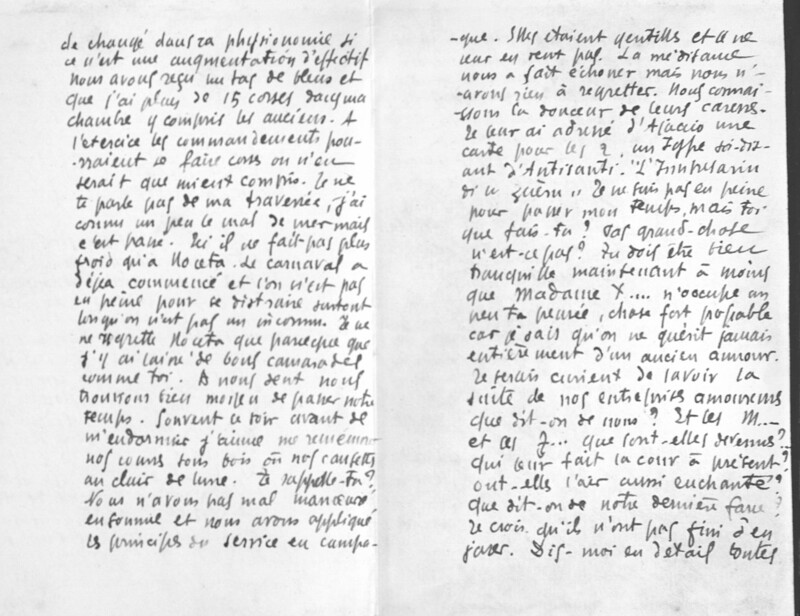 de changé dans sa physionomie si
ce n'est une augmentation d'effectif
nous avons reçu un tas de bleus et
que j'ai plus de 15 corses dans ma
chambre y compris les anciens. A
l'exercice les commandements pou-
-rraient se faire corse on n'en
serait que mieux compris. Je ne
te parle pas de ma traversée, j'ai
connu un peu le mal de mer mais
c'est passé. Ici il ne fait pas plus
froid qu'a Noceta. Le carnaval a
déjea commencé et l'on n'est pas
en peine pour se distraire surtout
lorsqu'on n'est pas un inconnu. Je ne
ne regrette Noceta que parceque que
j'y ai laissé de bons camarades
comme toi. A nous deux nous
trouvions bien moyen de passer notre
temps. Souvent ce soir avant de
m'endormir j'aime me remémorer
nos cours sous bois où nos causettes
au clair de lune. Te rappelle-toi?
Nous n'avons pas mal manœuvré
ensomme et nous avons appliqué
les principes du service en campa-
-que. Elles étaient gentilles et il ne
leur en rest pas. La méditance
nous a fait échoner mais nous n'-
-avons rien à regretter. Nous connai-
-ssons la douceur de leurs caresses.
Je leur ai adressé d'Ajaccio une
carte pour les 2, un Joffre soi-dis-
ant d'Antisanti.
Je ne suis pas en peine
pour passer mon temps, mais toi
que fais-tu? Pas grand-chose
n'est-ce pas? Tu dois être bien
tranquille maintenant à moins
que Madame X.... n'occupe un
peu ta pensée, chose fort possiable
car je sais qu'on ne guérit jamais
entièrement d'un ancien amour.
Je serais curieux de savoir la
suite de nos entreprises amoureuses
que dit-on de nous? Et les M...
et les F... que sont-elles devenues?
qui leur fait la cour à présent?
ont-elles l'air aussi enchanté?
que dit-on de notre dernière farce?
Je crois qu'ils n'ont pas fini d'en
jaser. Dis-moi en détail toutes